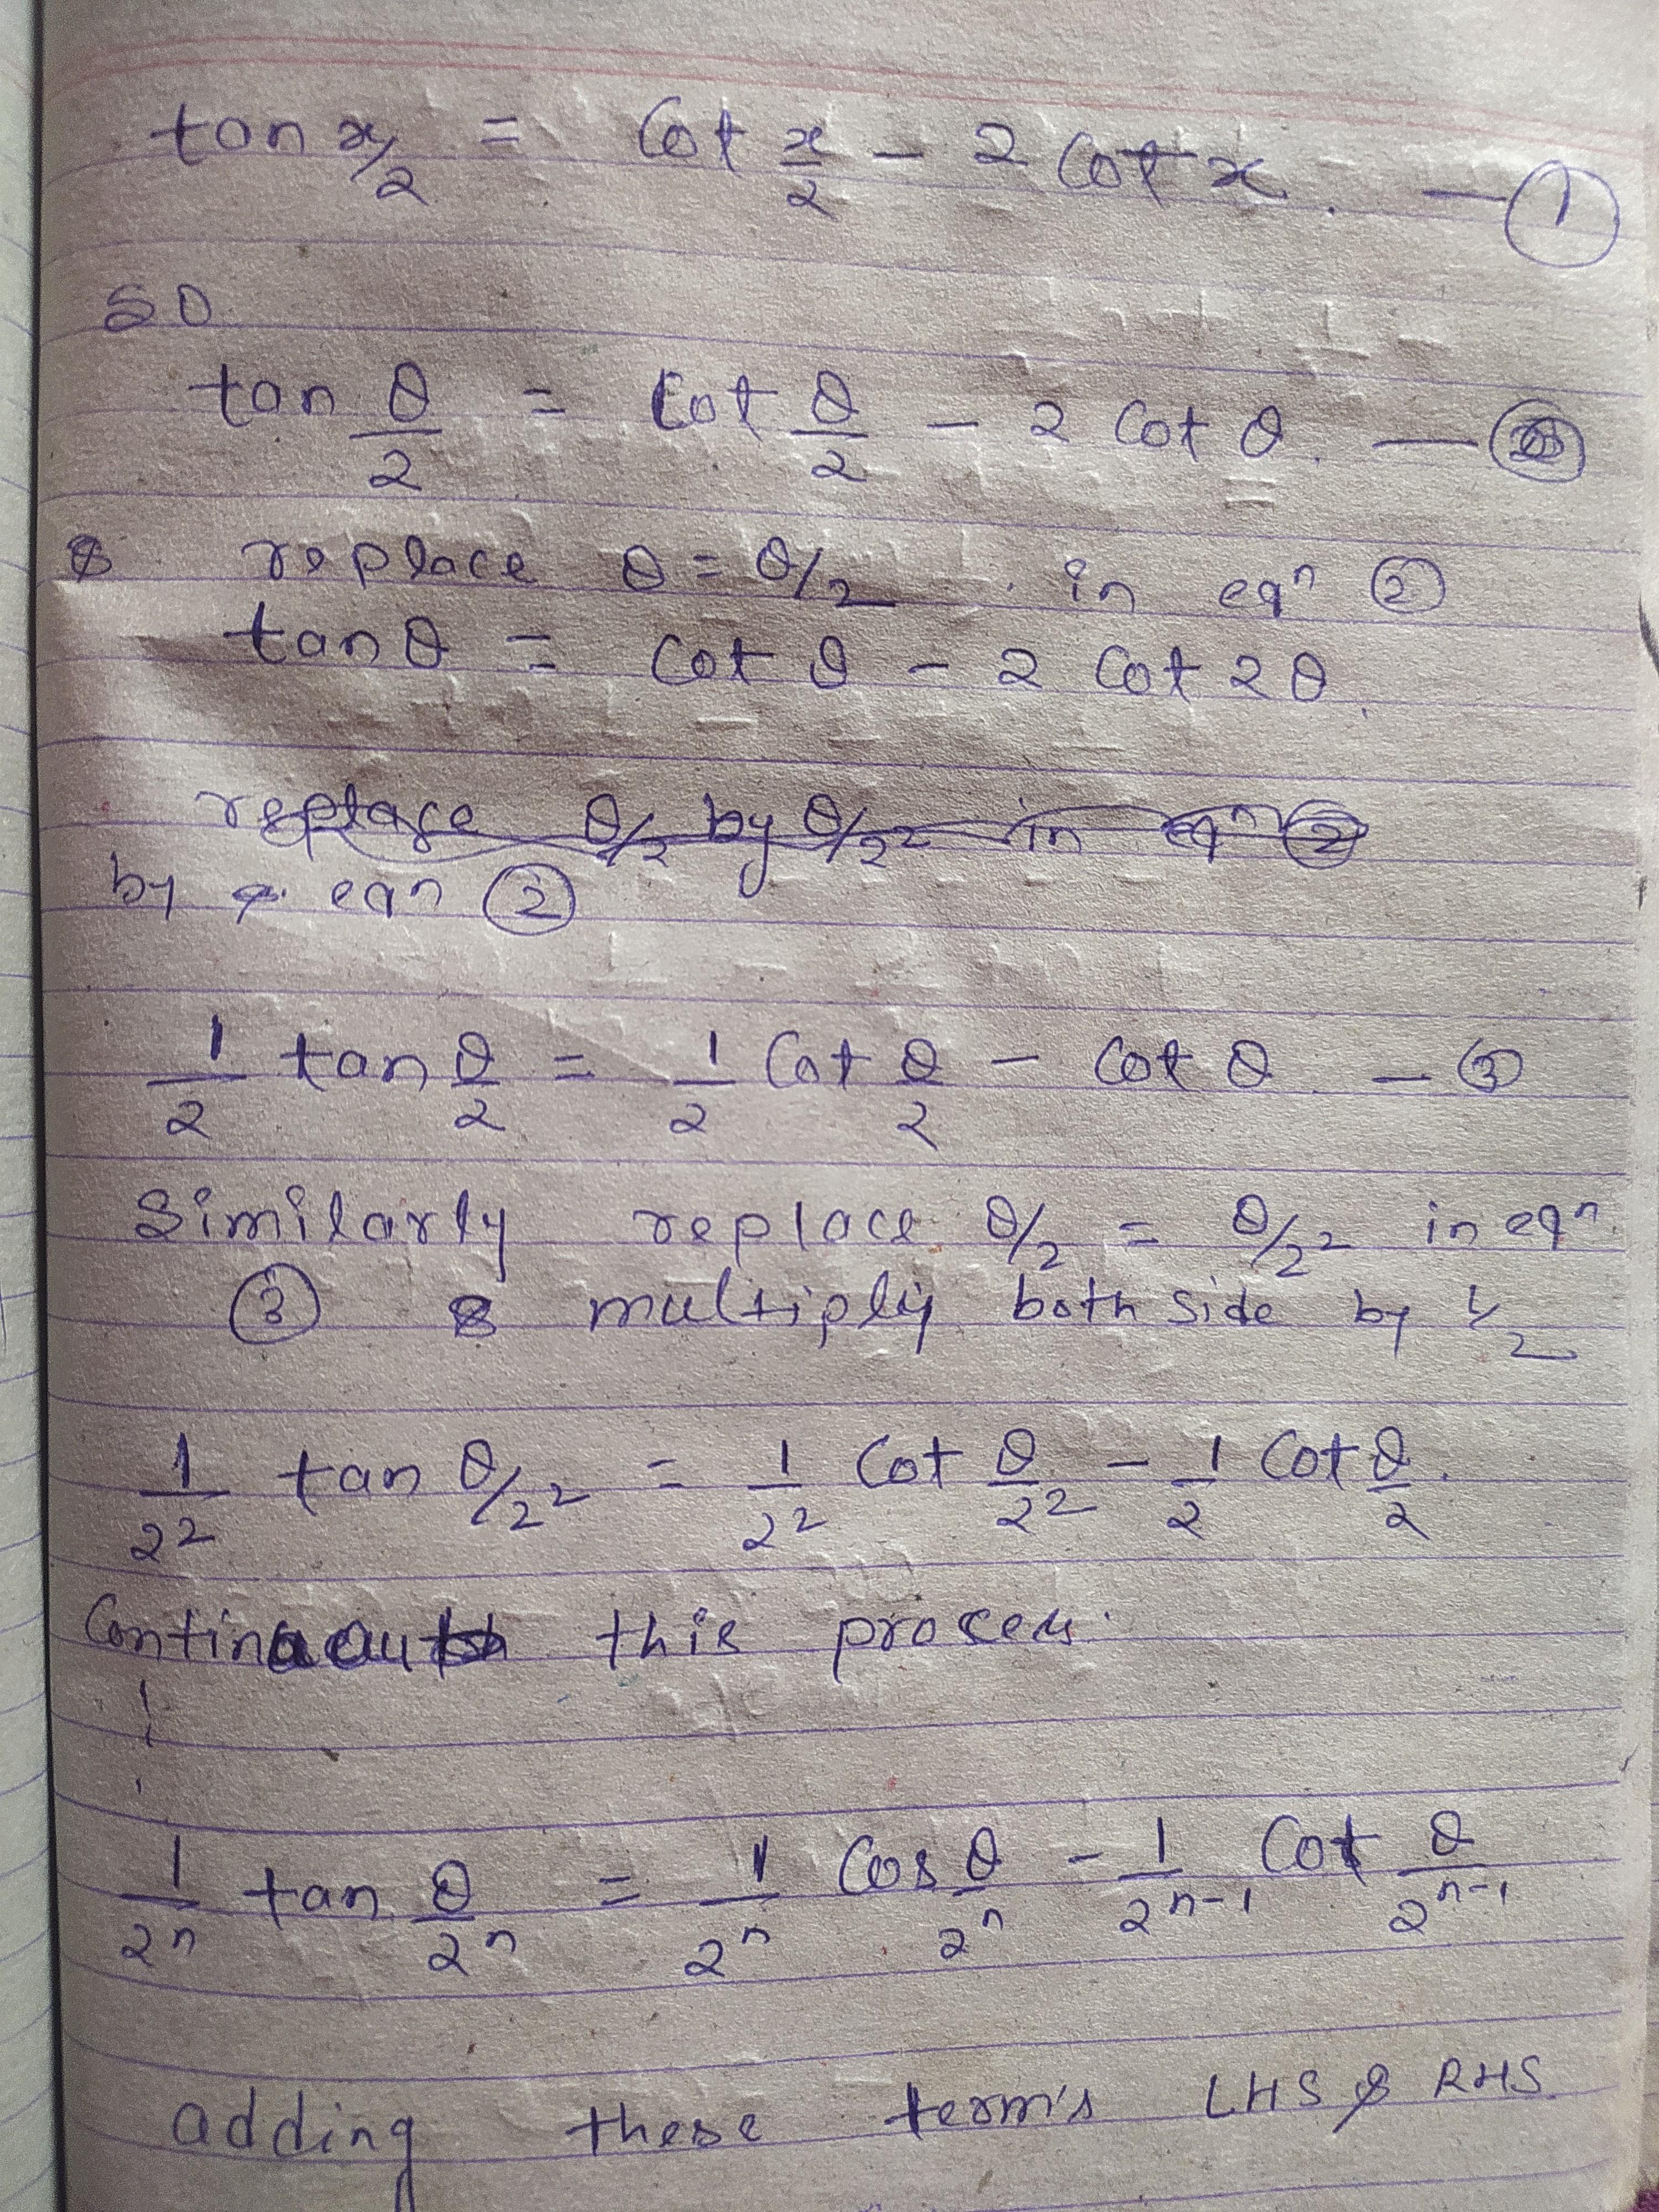 tan x/2 = Cot x/2 - 2 Cot x. — ①
SO
tan θ/2 = Cot θ/2 - 2 Cot θ. — ②
replace θ = θ/2 . in eqⁿ ②
tan θ = Cot θ - 2 Cot 2θ.
replace θ/2 by θ/2² in eqⁿ ②
by eqn ②
1/2 tan θ/2 = 1/2 Cot θ/2 - Cot θ — ③
Similarly replace θ/2 = θ/2² in eqⁿ.
③ & multiply both side by 1/2
1/2² tan θ/2² = 1/2² Cot θ/2² - 1/2 Cot θ/2.
this process.
1/2ⁿ tan θ/2ⁿ = 1/2ⁿ Cos θ/2ⁿ - 1/2ⁿ⁻¹ Cot θ/2ⁿ⁻¹
adding these term's LHS & RHS.